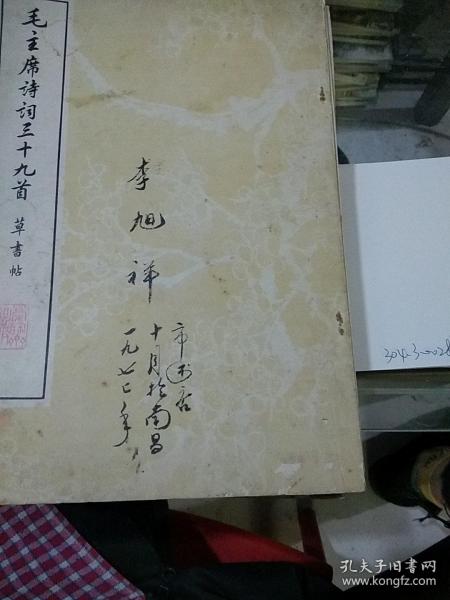 毛主席詩詞三十九首 草書帖
李旭祥
一九七七年
十月於南昌
304-3-0028
孔夫子旧书网
www.kongfz.com